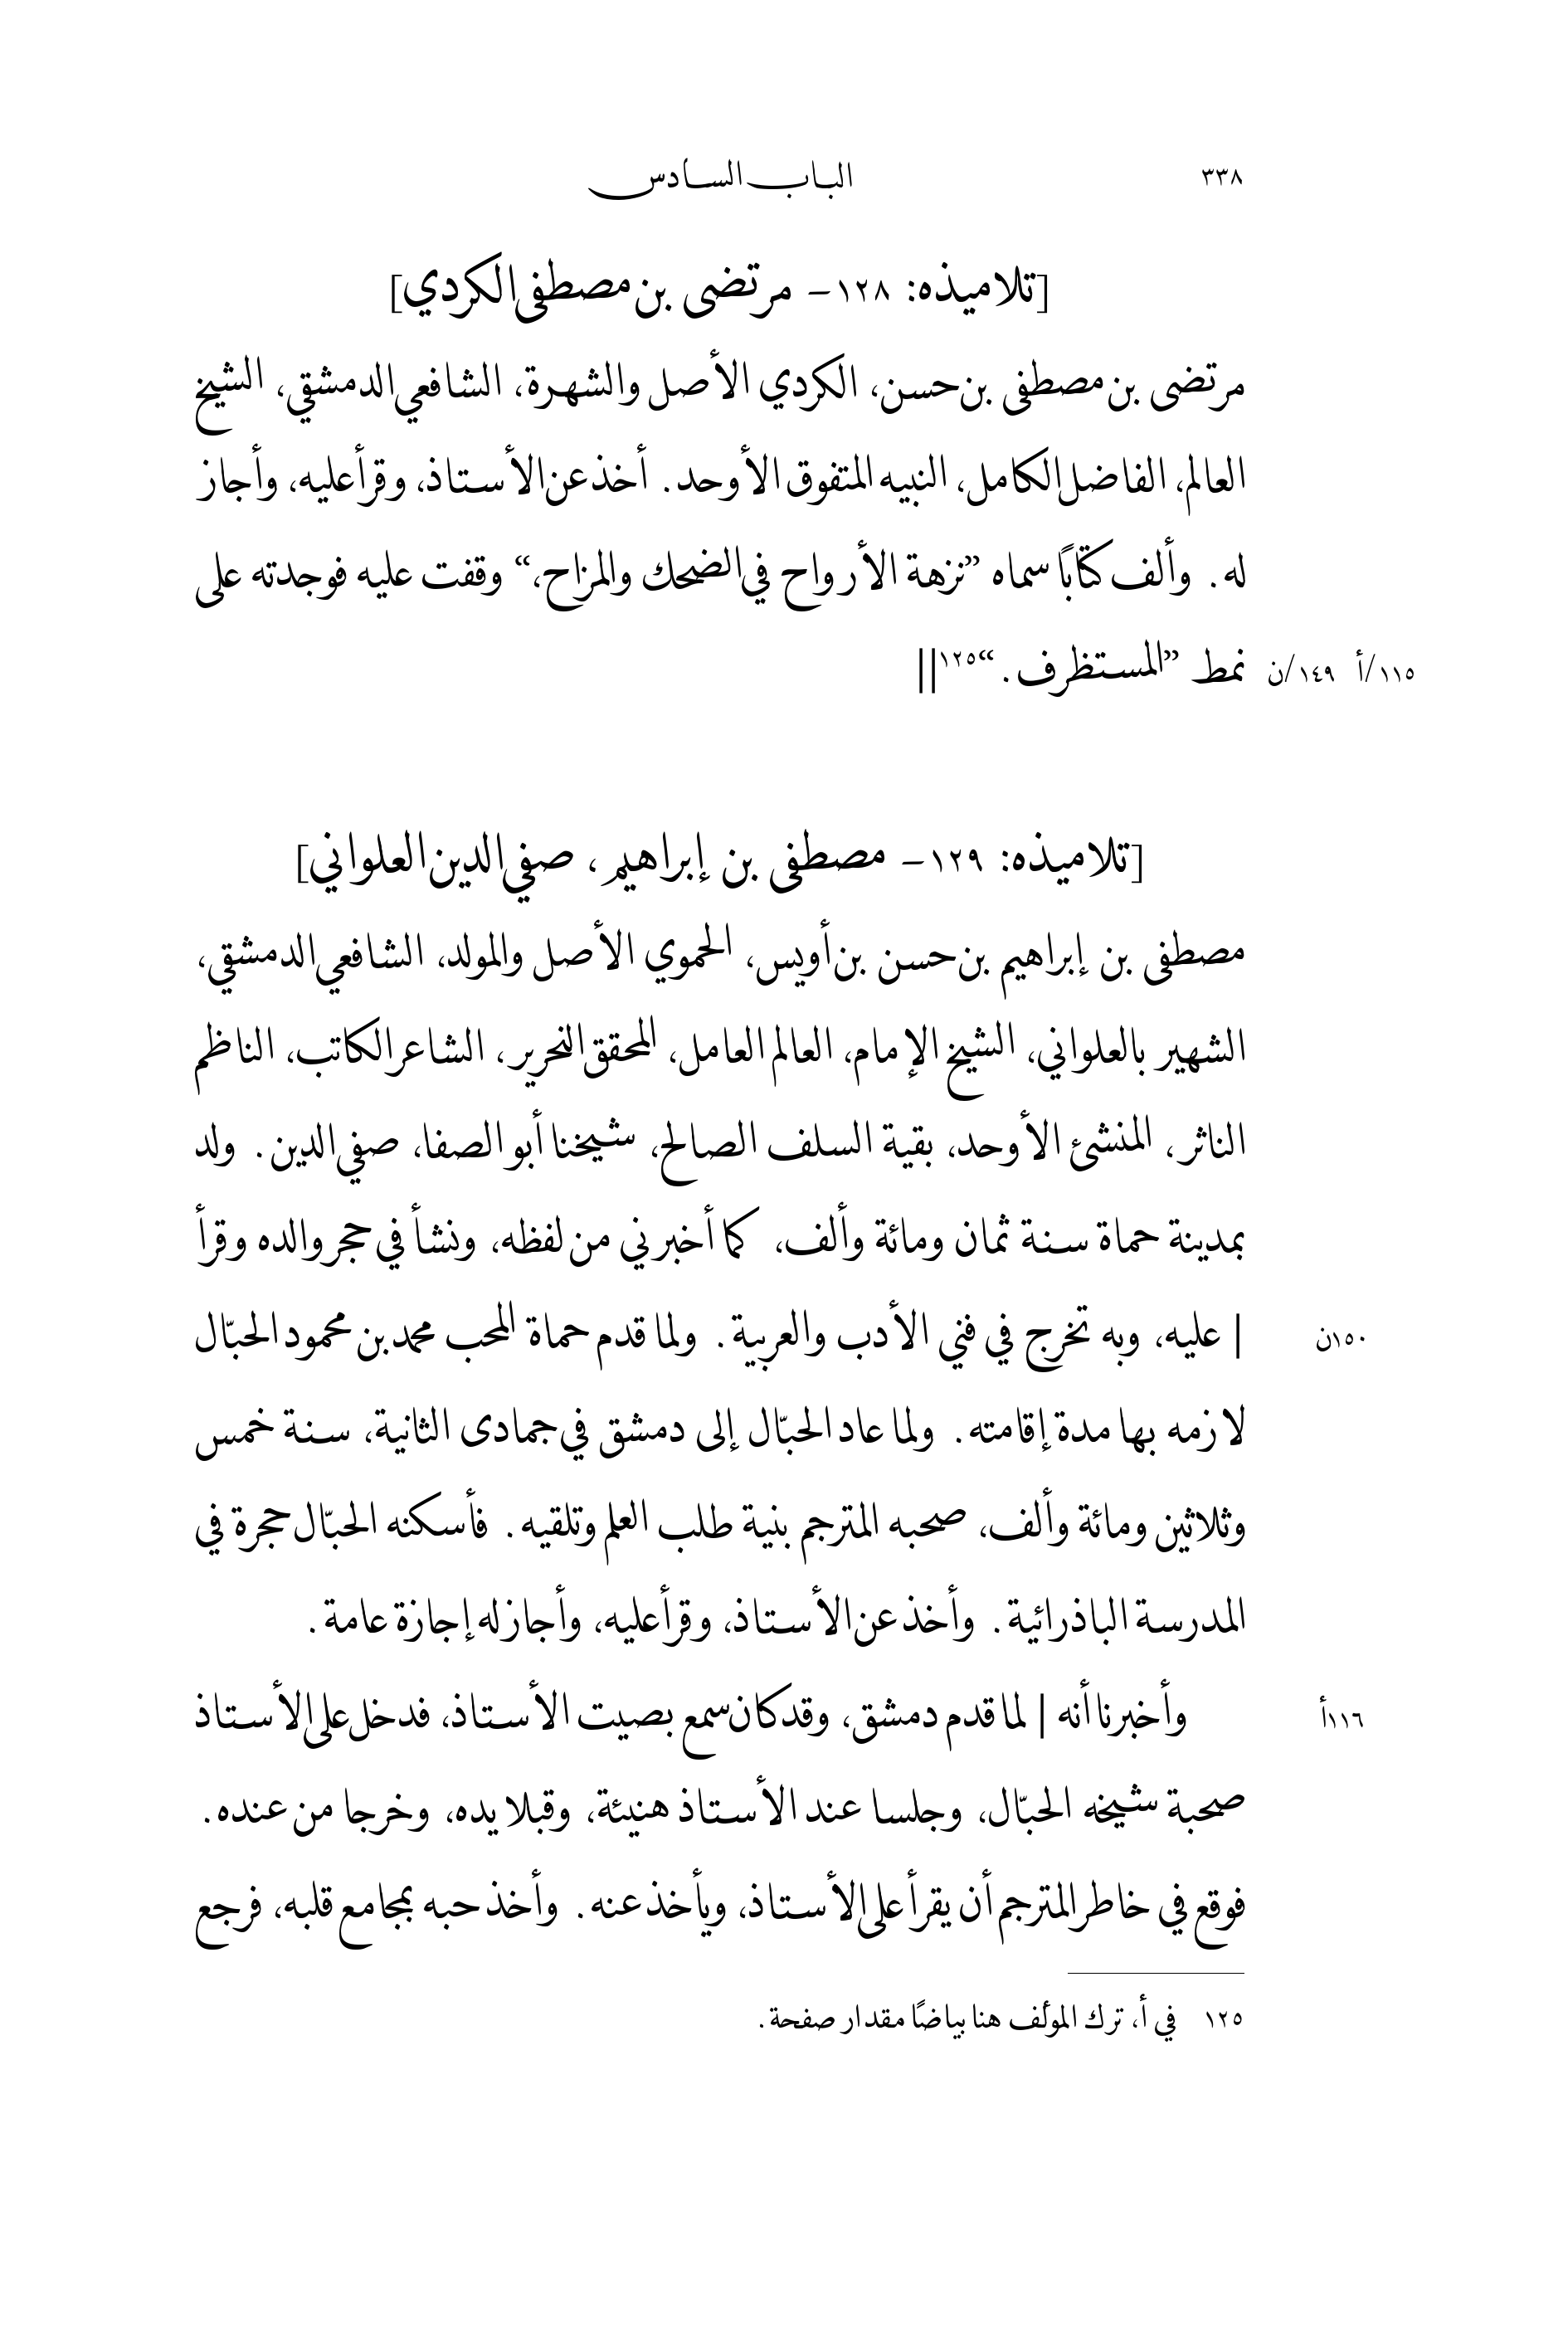 ٣٣٨ الباب السادس
[تلاميذه: ١٢٨– مرتضى بن مصطفى الكردي]
مرتضى بن مصطفى بن حسن، الكردي الأصل والشهرة، الشافعي الدمشقي، الشيخ
العالم، الفاضل الكامل، النبيه المتفوق الأوحد. أخذ عن الأستاذ، وقرأ عليه، وأجاز
له. وألف كتابًا سماه ”نزهة الأرواح في الضحك والمزاح،“ وقفت عليه فوجدته على
١١٥/أ ١٤٩/ن نمط ”المستظرف.“١٢٥||
[تلاميذه: ١٢٩– مصطفى بن إبراهيم، صفي الدين العلواني]
مصطفى بن إبراهيم بن حسن بن أويس، الحموي الأصل والمولد، الشافعي الدمشقي،
الشهير بالعلواني، الشيخ الإمام، العالم العامل، المحقق النحرير، الشاعر الكاتب، الناظم
الناثر، المنشئ الأوحد، بقية السلف الصالح، شيخنا أبو الصفا، صفي الدين. ولد
بمدينة حماة سنة ثمان ومائة وألف، كما أخبرني من لفظه، ونشأ في حجر والده وقرأ
١٥٠ن | عليه، وبه تخرج في فني الأدب والعربية. ولما قدم حماة المحب محمد بن محمود الحبّال
لازمه بها مدة إقامته. ولما عاد الحبّال إلى دمشق في جمادى الثانية، سنة خمس
وثلاثين ومائة وألف، صحبه المترجم بنية طلب العلم وتلقيه. فأسكنه الحبّال حجرة في
المدرسة الباذرائية. وأخذ عن الأستاذ، وقرأ عليه، وأجاز له إجازة عامة.
١١٦أ وأخبرنا أنه | لما قدم دمشق، وقد كان سمع بصيت الأستاذ، فدخل على الأستاذ
صحبة شيخه الحبّال، وجلسا عند الأستاذ هنيئة، وقبلا يده، وخرجا من عنده.
فوقع في خاطر المترجم أن يقرأ على الأستاذ، ويأخذ عنه. وأخذ حبه بمجامع قلبه، فرجع
١٢٥ في أ، ترك المؤلف هنا بياضًا مقدار صفحة.